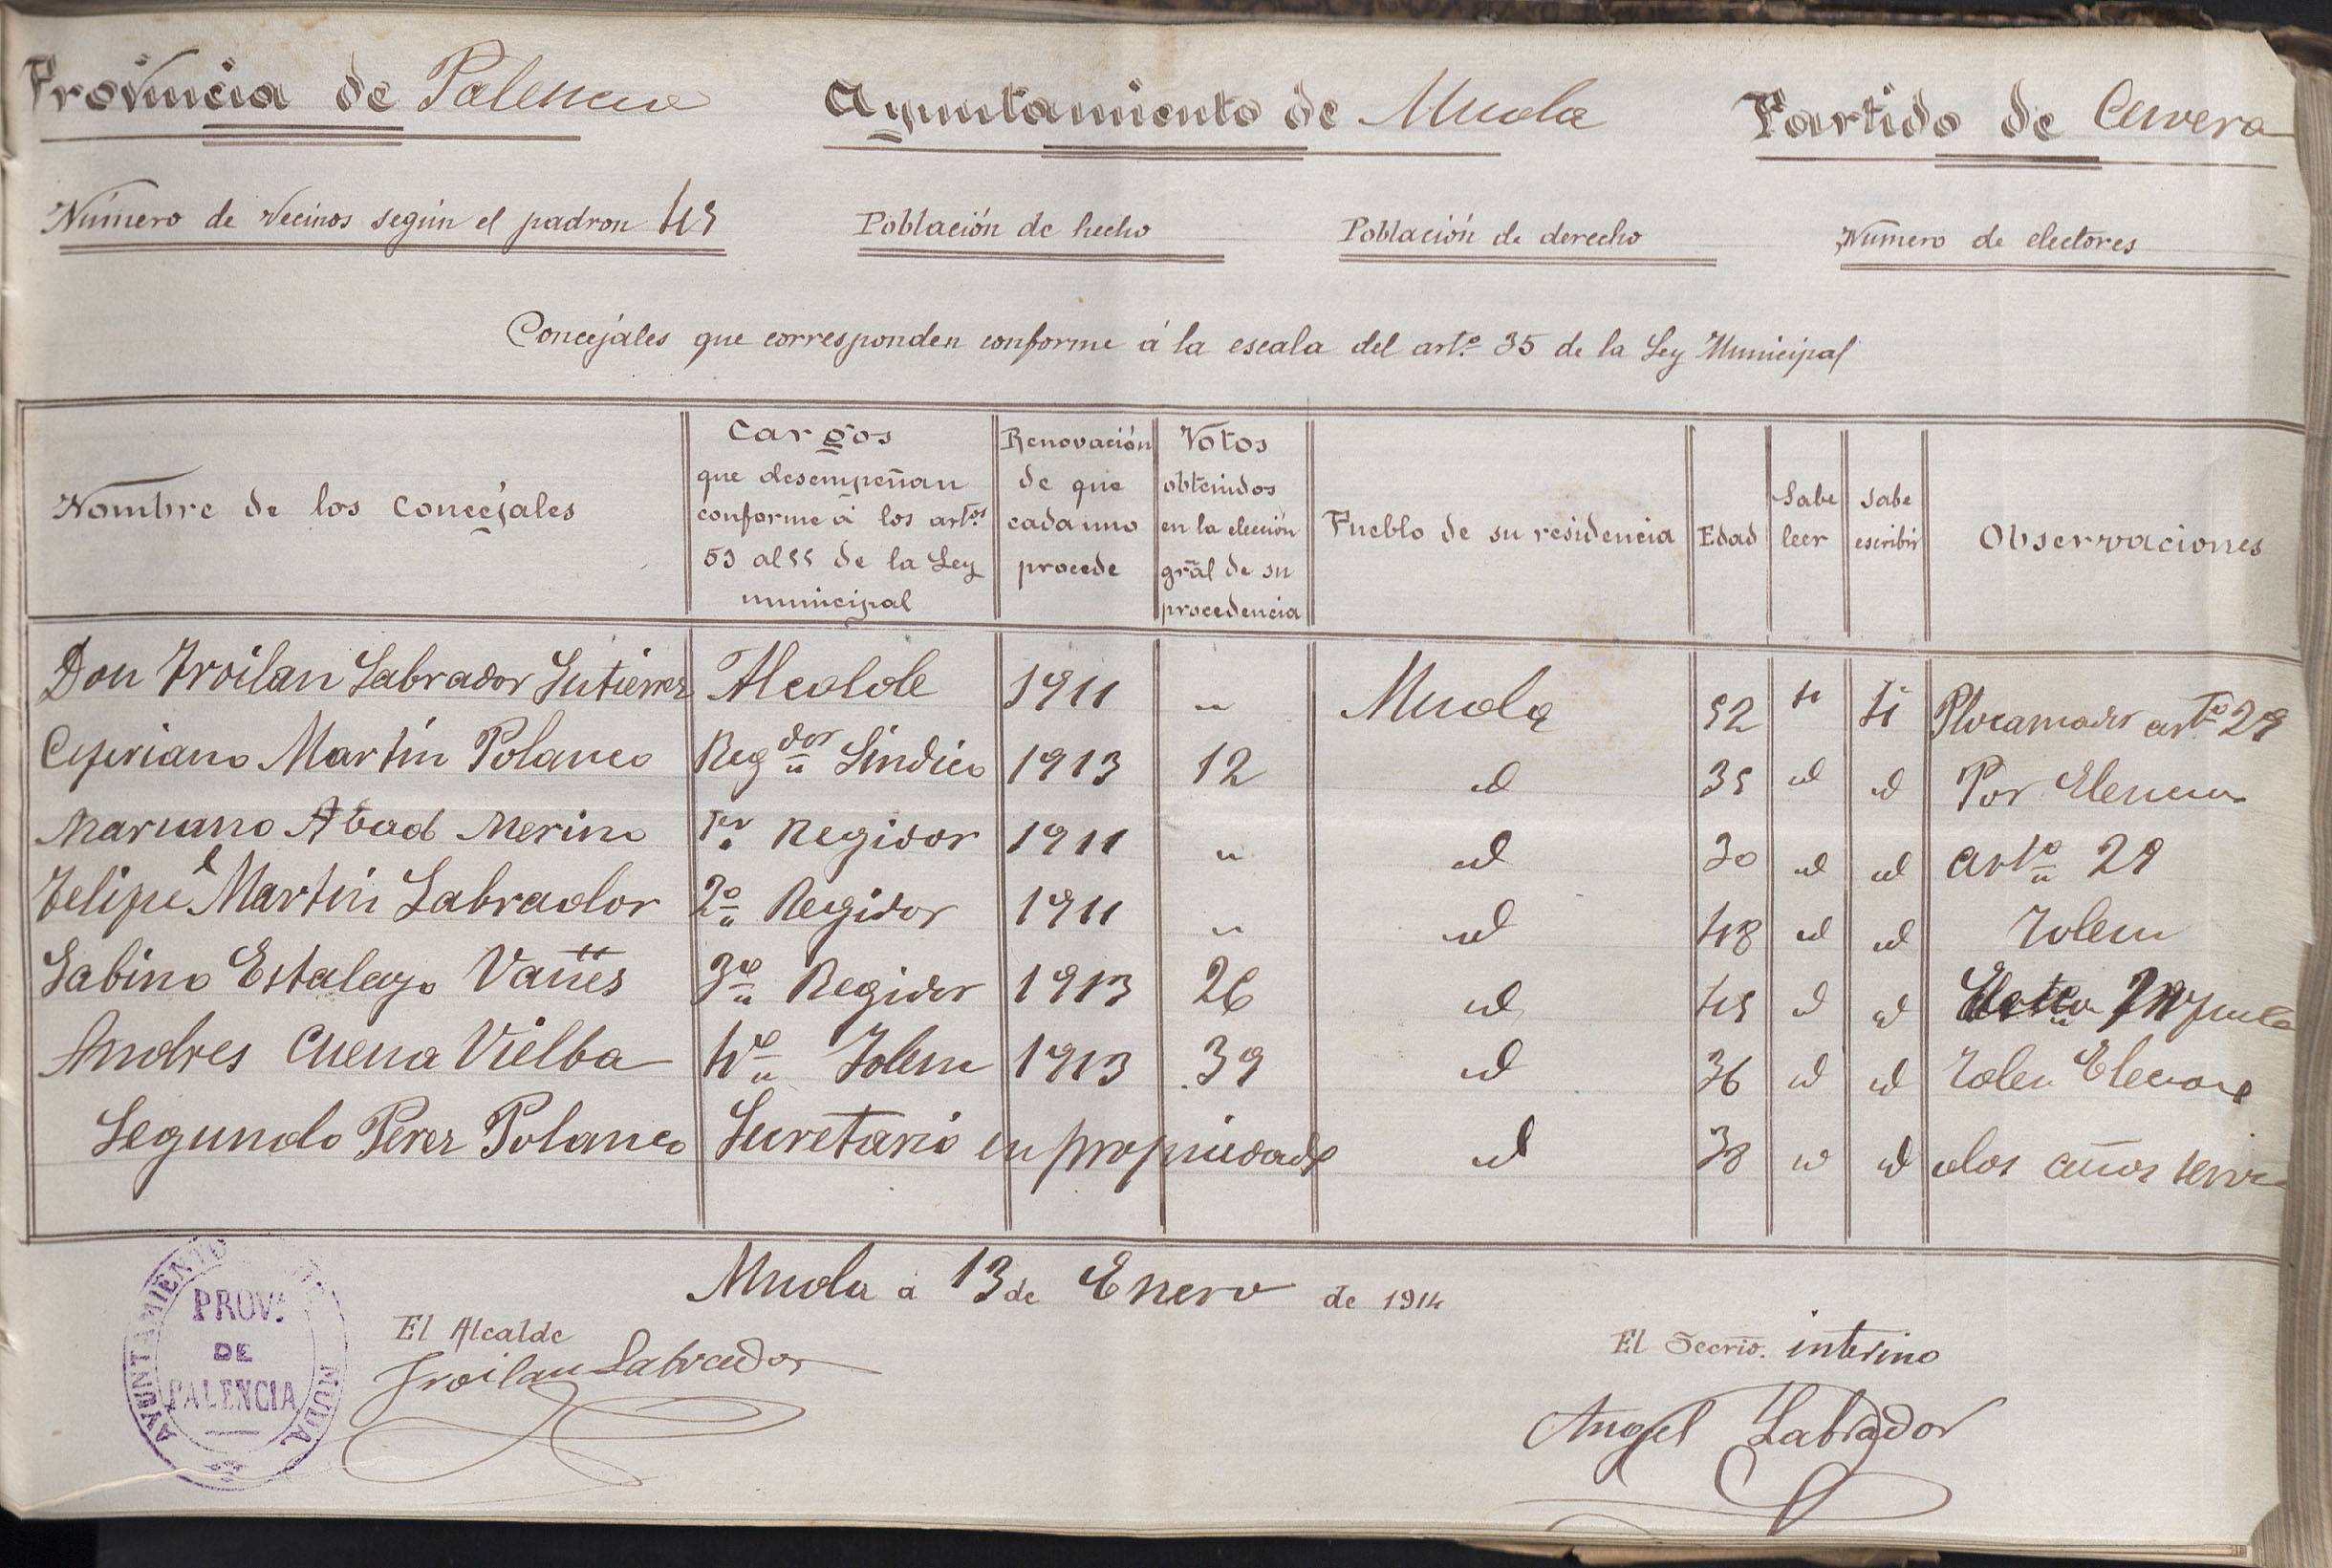 Provincia de Palencia Ayuntamiento de Muda Partido de Cervera
Número de Vecinos según el padron 45 Población de hecho Población de derecho Número de electores
Concejales que corresponden conforme á la escala del artº 35 de la Ley Municipal
Nombre de los Concejales
Cargos
que desempeñan
conforme á los artos
53 al 55 de la Ley
municipal
Renovación
de que
cada uno
procede
Votos
obtenidos
en la elección
gral de su
procedencia
Pueblo de su residencia
Edad
Sabe
leer
Sabe
escribir
Observaciones
Don Froilan Labrador Gutierrez Alcalde 1911 " Muda 52 si si artº 29
Cipriano Martín Polanco Regdor Síndico 1913 12 id 35 id id Por
Mariano Abad Merino 1er Regidor 1911 " id 30 id id artº 29
Felipe Martin Labrador 2º Regidor 1911 " id 48 id id Idem
Sabino Estalayo Vañes 3º Regidor 1913 26 id 45 id id
Andres Cuena Vielba 4º Idem 1913 39 id 36 id id
Segundo Perez Polanco Secretario en propiedad id 38 id id dos años
Muda a 13 de Enero de 1914
El Alcalde
Froilan Labrador
El Secrio. interino
Angel Labrador
AYUNTAMIENTO MUDA
PROV.
DE
PALENCIA